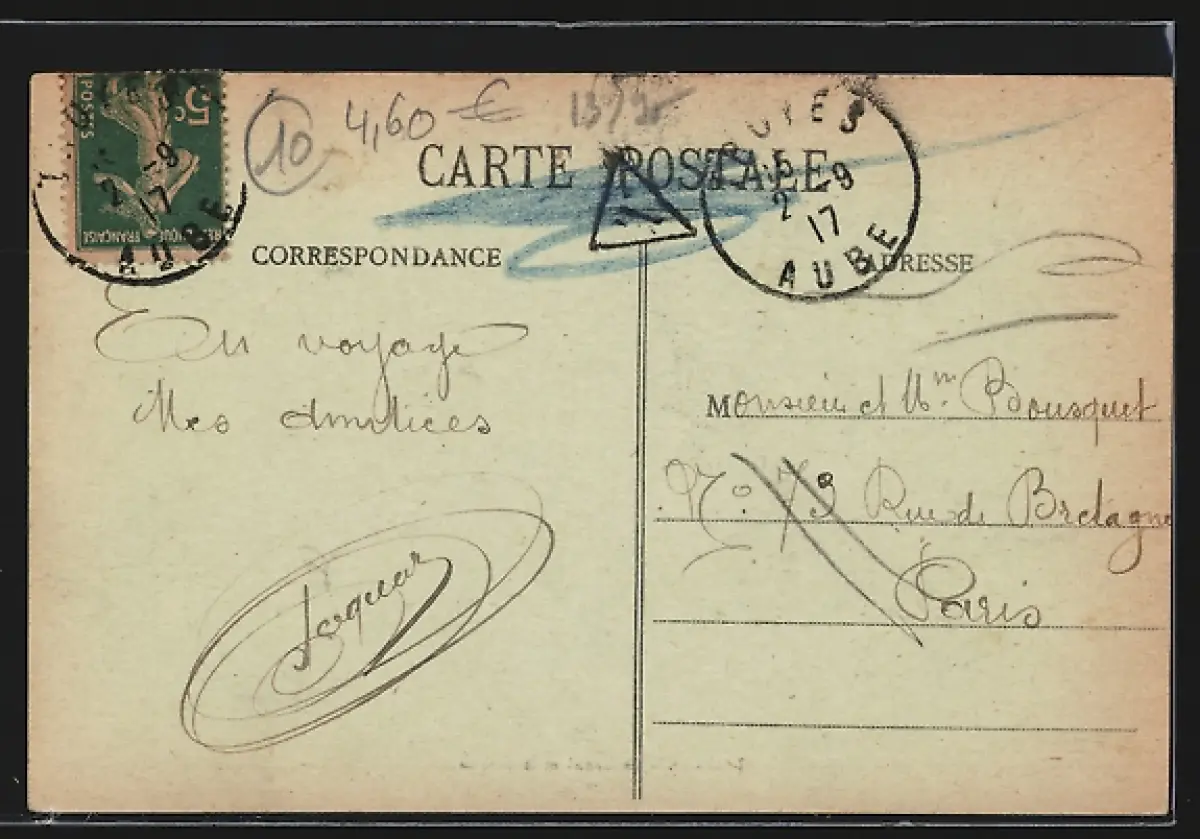 5c
POSTES
RÉPUBLIQUE FRANÇAISE
2-9
17
AUBE
10
4,60 €
CARTE POSTALE
TROYES
2-9
17
AUBE
CORRESPONDANCE
ADRESSE
En voyage
Mes amitiés
Monsieur et Mm Bousquet
No. 73 Rue de Bretagne
Paris